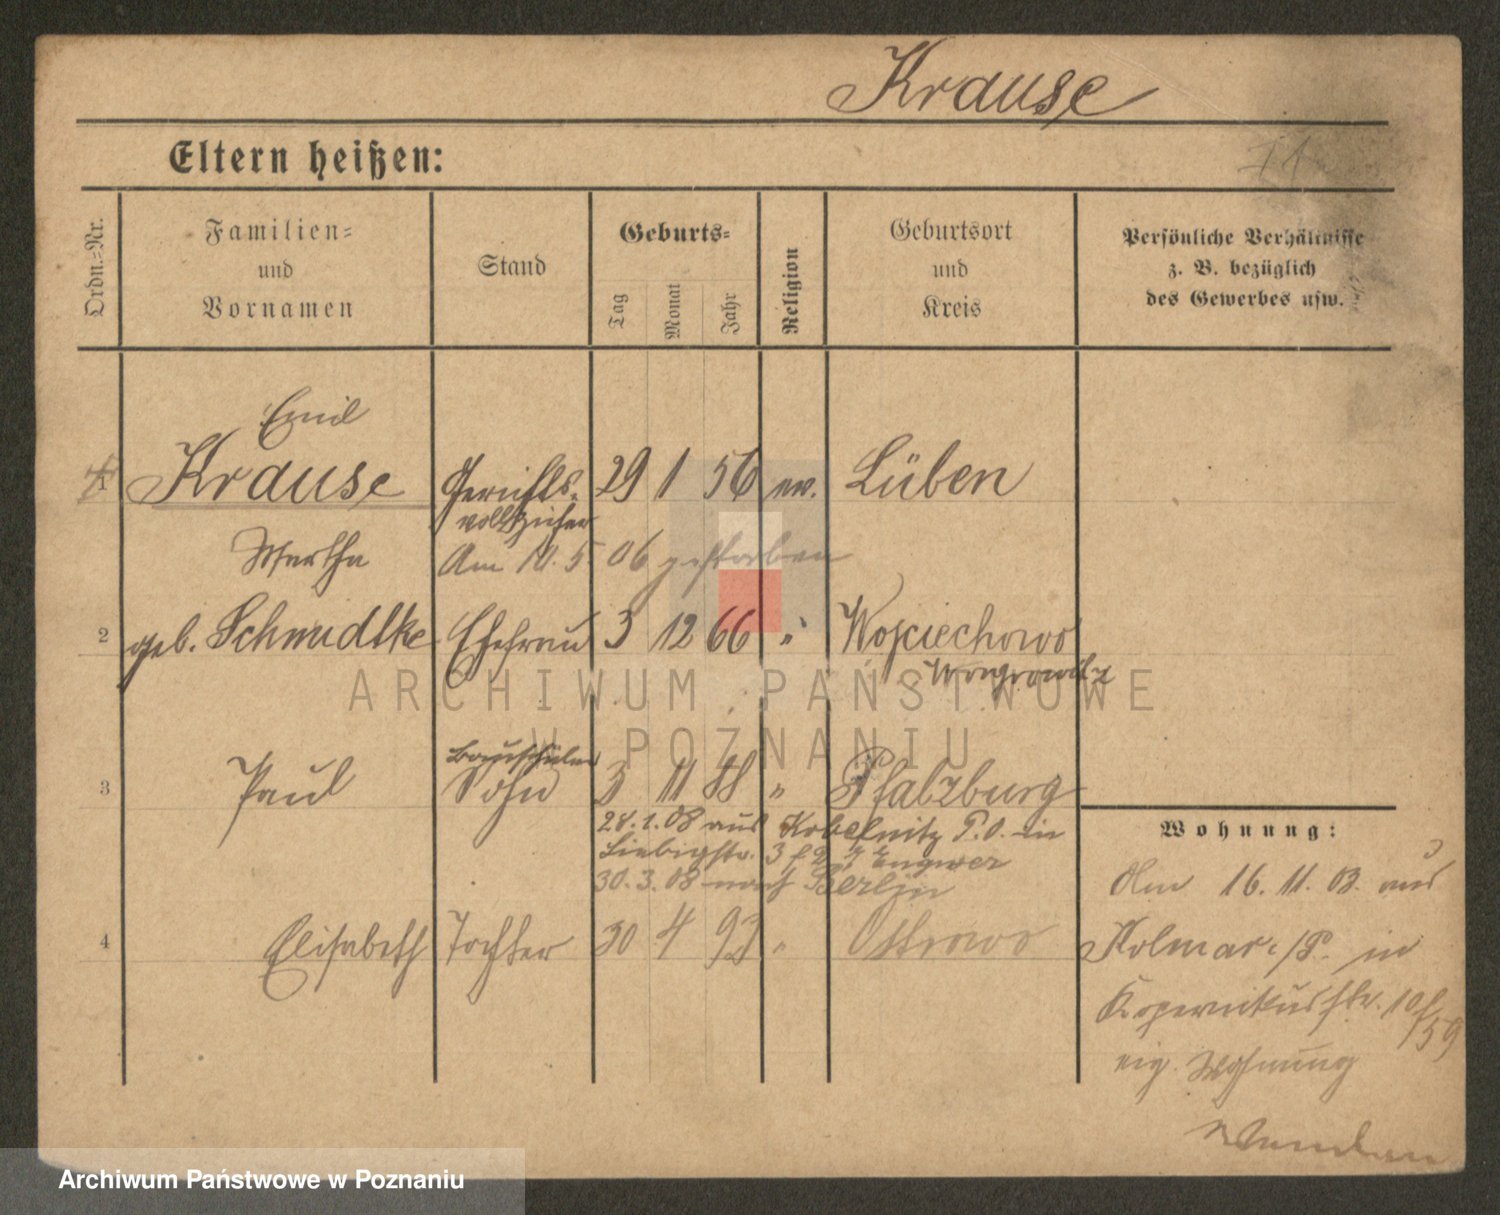 Krause
Eltern heißen:
Ordn.-Nr.
Familien-
und
Vornamen
Stand
Geburts-
Tag
Monat
Jahr
Religion
Geburtsort
und
Kreis
Persönliche Verhältnisse
z. B. bezüglich
des Gewerbes usw.
Emil
1 Krause Gerichts- 29 1 56 ev. Lüben
vollzieher
Martha Am 10. 5. 06 gestorben
2 geb. Schmidtke Ehefrau 3 12 66 " Wojciechowo
Wongrowitz
Bauschüler
3 Paul Sohn 3 11 88 " Pfalzburg
28. 1. 08 aus Kobelnitz P. O. in
Liebigstr. 3 Engwer
30. 3. 08 nach Berlin
4 Elisabeth Tochter 30 4 93 " Ostrowo
Wohnung:
Am 16. 11. 03. aus
Kolmar i/P. in
Kopernikusstr. 10/59
eig. Wohnung
ARCHIWUM PAŃSTWOWE
W POZNANIU
Archiwum Państwowe w Poznaniu